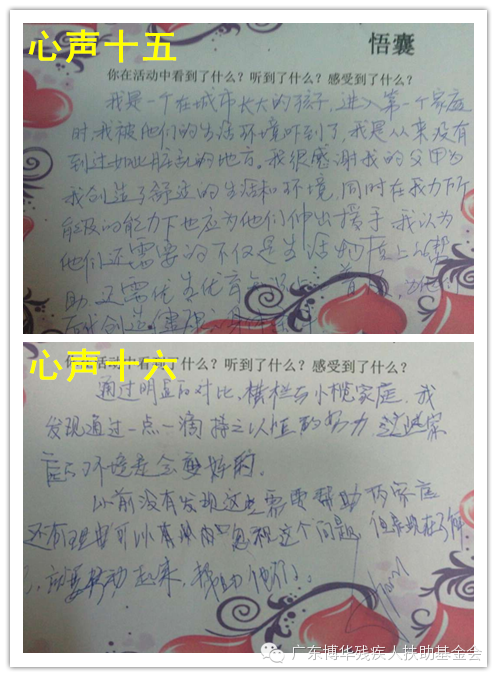 心声十五
悟囊
你在活动中看到了什么？听到了什么？感受到了什么？
我是一个在城市长大的孩子，进入第一个家庭
时，我被他们的生活环境吓到了，我是从来没有
到过如此脏乱的地方。我很感谢我的父母为
我创造了舒适的生活和环境，同时在我力所
能级的能力下也应为他们伸出援手，我认为
他们还需要的不仅是生活物质上的帮
助，还需优生优育
心声十六
你在活动中看到了什么？听到了什么？感受到了什么？
通过明显的对比，横栏与小榄家庭，我
发现通过一点一滴持之以恒的努力 这些家
庭的环境是会变好的。
以前没有发现这些需要帮助的家庭
还有理由可以忽视这个问题，但是现在了解
了，就要行动起来，帮助他们。
广东博华残疾人扶助基金会